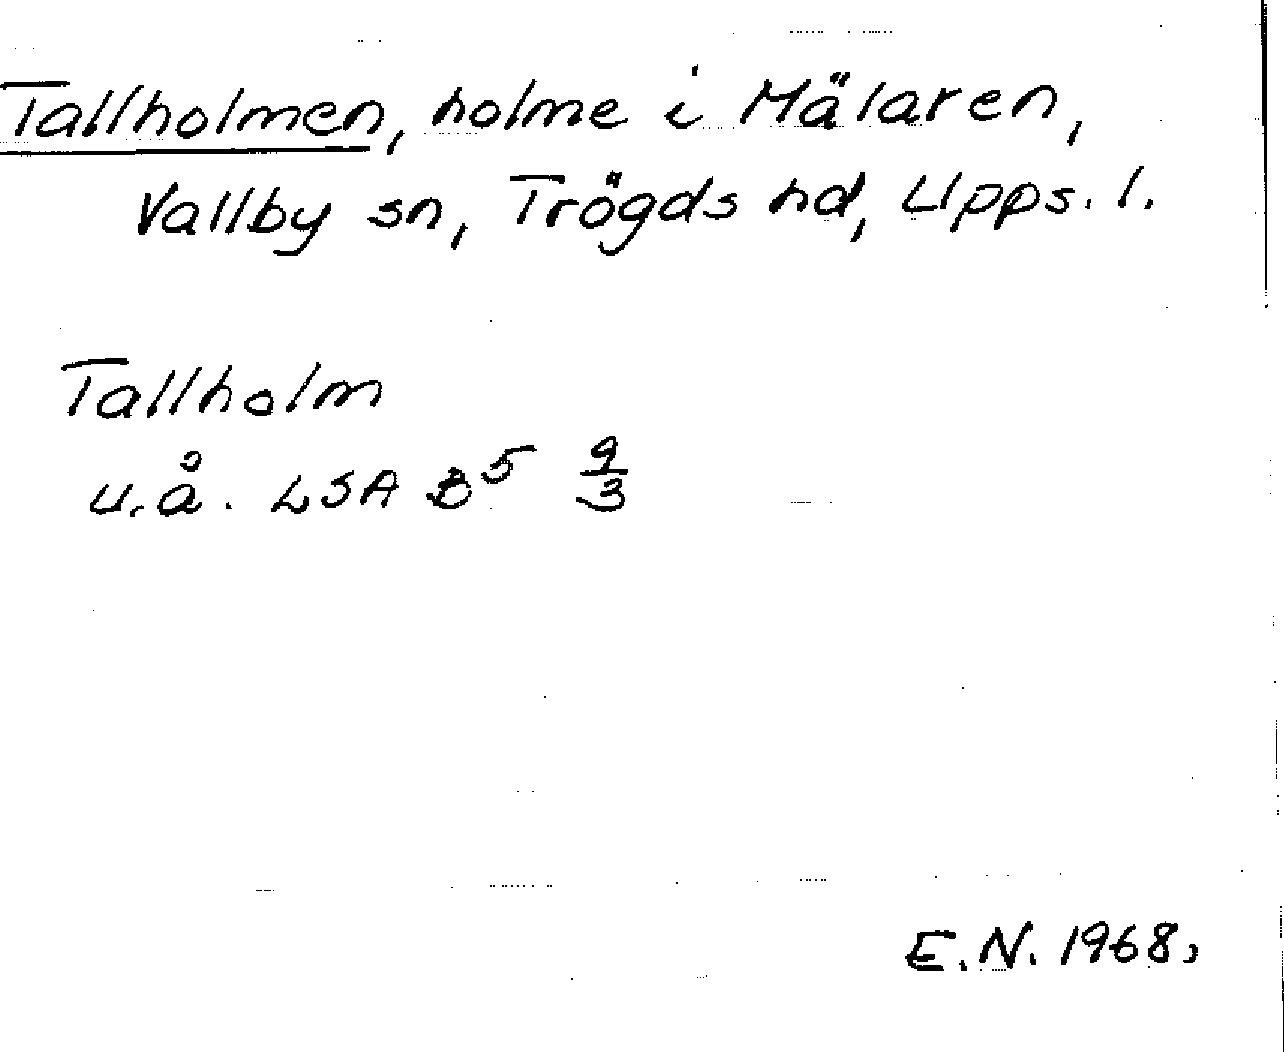 Tallholmen, holme i Mälaren,
Vallby sn, Trögds hd, Upps. l.
Tallholm
u.å. LSA B⁵ 9/3
E.N. 1968,